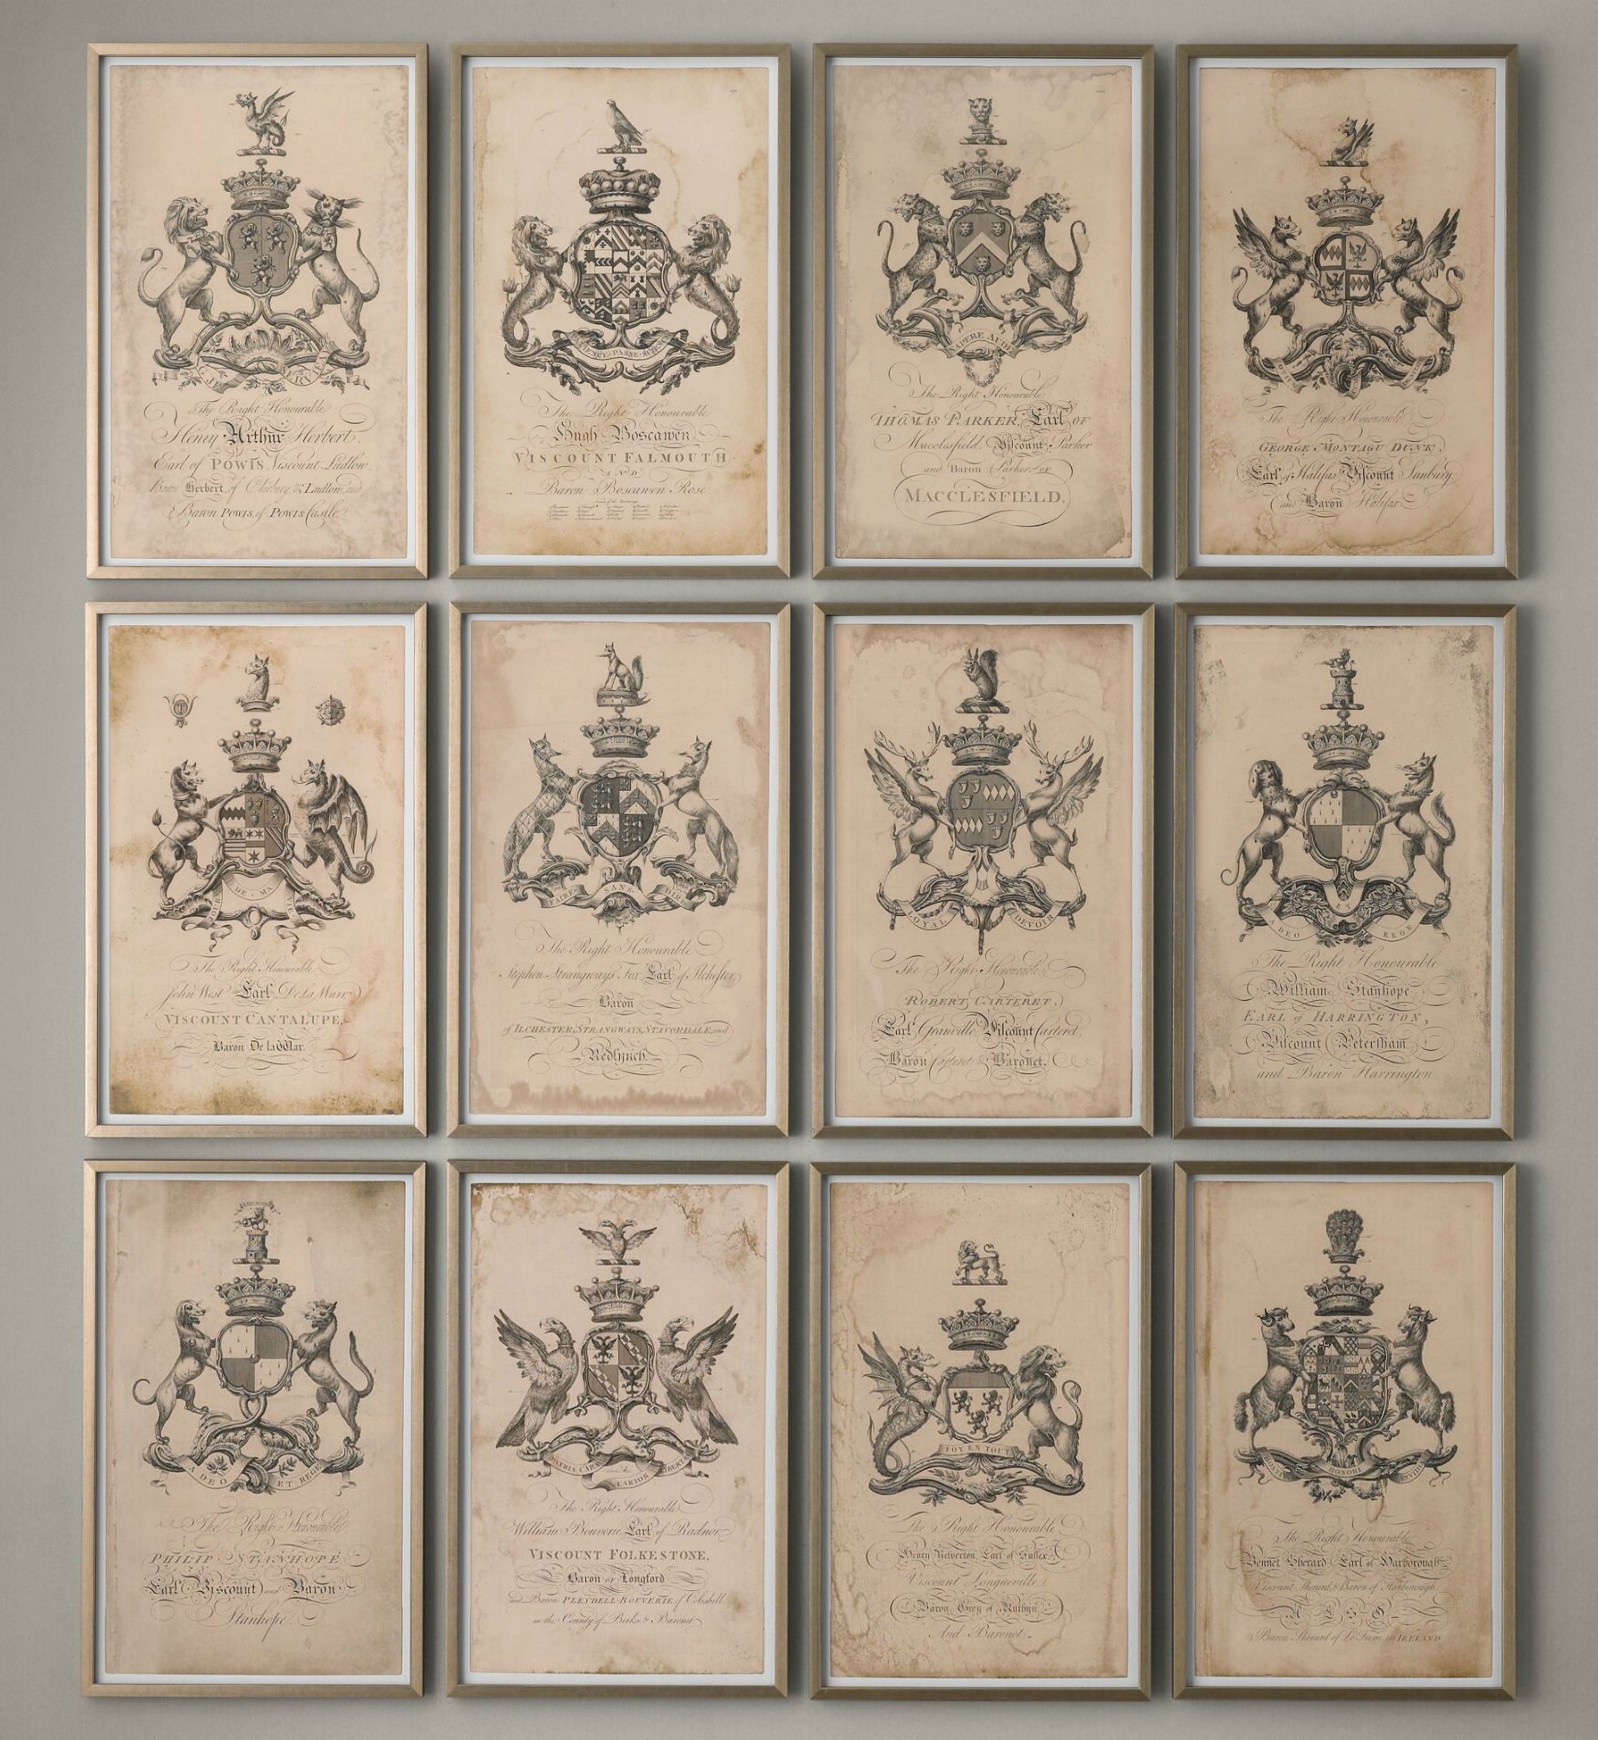 The Right Honourable
Henry Arthur Herbert,
Earl of POWIS, Viscount Ludlow,
Baron Herbert, of Cherbury & Ludlow, and
Baron Powis, of Powis Castle.
PASSE
The Right Honourable
Hugh Boscawen
VISCOUNT FALMOUTH
AND
Baron Boscawen Rose
SAPERE AUDE
The Right Honourable
THOMAS PARKER, Earl OF
Macclesfield, Viscount Parker
and Baron Parker of
MACCLESFIELD.
The Right Honourable
GEORGE MONTAGU DUNK,
Earl of Halifax Viscount Sunbury
and Baron Halifax
DE MA
The Right Honourable
John West Earl De la Warr,
VISCOUNT CANTALUPE,
Baron De la War.
FAIRE SANS DIRE
The Right Honourable
Stephen Strangways Fox Earl of Ilchester,
Baron
of ILCHESTER, STRANGWAYS, STAVORDALE, and
Redlynch.
LOYAL DEVOIR
The Right Honourable
ROBERT CARTERET,
Earl Granville, Viscount Carteret
Baron Carteret & Baronet.
DEO REGE
The Right Honourable
William Stanhope
EARL of HARRINGTON,
Viscount Petersham
and Baron Harrington
A DEO ET REGE
The Right Honourable
PHILIP STANHOPE
Earl Viscount and Baron
Stanhope
PATRIA CARA CARIOR LIBERTAS
The Right Honourable
William Bouverie Earl of Radnor,
VISCOUNT FOLKESTONE,
Baron of Longford
and Baron PLEYDELL-BOUVERIE of Coleshill
in the County of Berks & Baronet
FOY EN TOUT
The Right Honourable
Henry Yelverton, Earl of Sussex,
Viscount Longueville
Baron Grey of Ruthyn
And Baronet
HONORI
The Right Honourable
Bennet Sherard Earl of Harborough
Viscount Sherard, & Baron of Harborough
Baron Sherard of Le Trim in IRELAND